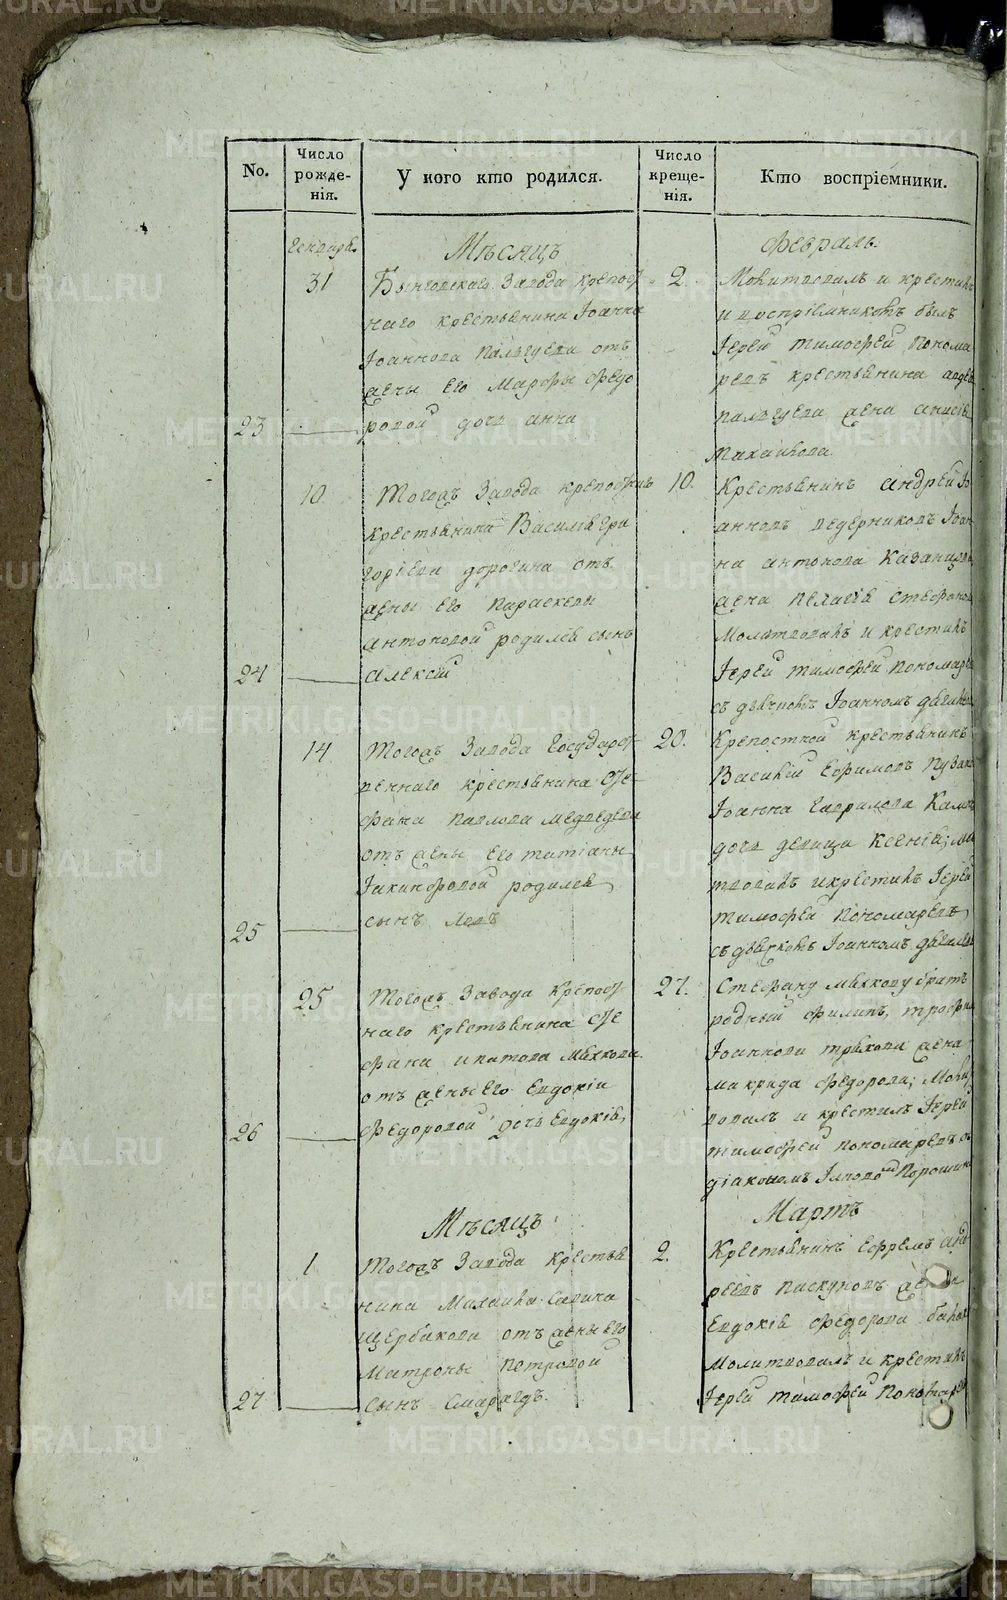 No.
Число рожде-нія.
У кого кто родился.
Число креще-нія.
Кто воспріемники.
Генваря.
Мѣсяцъ
Февраль
31
Бынговскаго Завода крепост
наго крестьянина Іоанна
Іоаннова Пальгуева отъ
жены его Марфы Федо
23
ровой дочь анна
2.
Молитвовалъ и крестилъ
и воспріемникомъ былъ
Іерей тимофей Понома
ревъ крестьянина
пальгуева жена
Михаилова
10
Тогожъ Завода
крестьянина Василія Гри
горіева дорогина отъ
жены его Параскевы
антоновой родился сынъ
24
Алексій
10.
Крестьянинъ андрей Іо
анновъ ведерниковъ Іоан
на антонова Казанцова
жена пелагія стефанова
Молитвовалъ и крестилъ
Іерей тимофей пономаревъ
съ дьячкомъ Іоанномъ
14
Тогожъ Завода Государст
веннаго крестьянина Сте
фана Павлова медведева
отъ жены его татіаны
Іакинфовой родился
25
сынъ Левъ
20.
Крепостной крестьянинъ
Василій Ефимовъ
Іоанна Гаврилова
дочь девица Ксенія; мо
твовалъ и крестилъ Іерей
тимофей Пономаревъ,
съ дьячкомъ Іоанномъ
25
Тогожъ Завода Крепост
наго крестьянина Сте
фана ипатова Мѣхкова
отъ жены Его Евдокіи
26
Федоровой дочь Евдокія,
27.
Стефану Мѣхкову братъ
родный Филипъ, трофима
Іоаннова жена
макрида Федорова; Моли
вовалъ и крестилъ Іерей
тимофей пономаревъ съ
діакономъ Порошин
Мѣсяцъ
Мартъ
1
Тогожъ Завода крестья
нина Михаила Савича
щербакова отъ жены его
Матроны петровой
27
сынъ Смарагдъ.
2.
Крестьянинъ Ефремъ анд
реевъ пискуновъ
Евдокія Федорова
Молитвовалъ и крестилъ
Іерей тимофей пономарев
METRIKI.GASO-URAL.RU